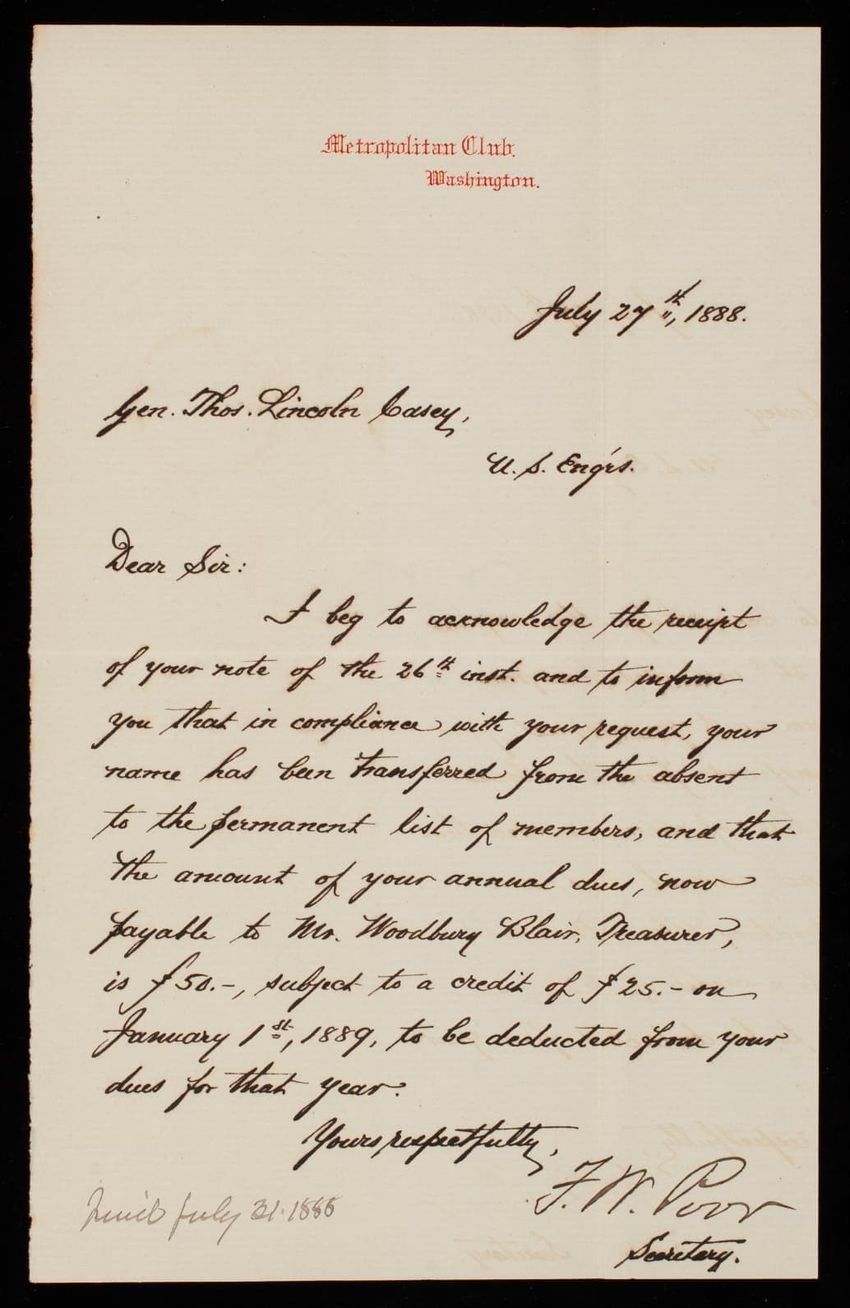 Metropolitan Club.
Washington.
July 27th, 1888.
Gen. Thos. Lincoln Casey,
U. S. Eng'rs.
Dear Sir:
I beg to acknowledge the receipt
of your note of the 26th inst. and to inform
you that in compliance with your request, your
name has been transferred from the absent
to the permanent list of members, and that
the amount of your annual dues, now
payable to Mr. Woodbury Blair, Treasurer,
is $50.-, subject to a credit of $25.- on
January 1st, 1889, to be deducted from your
dues for that year.
Yours respectfully,
F. W. Poor
Secretary.
July 31. 1888